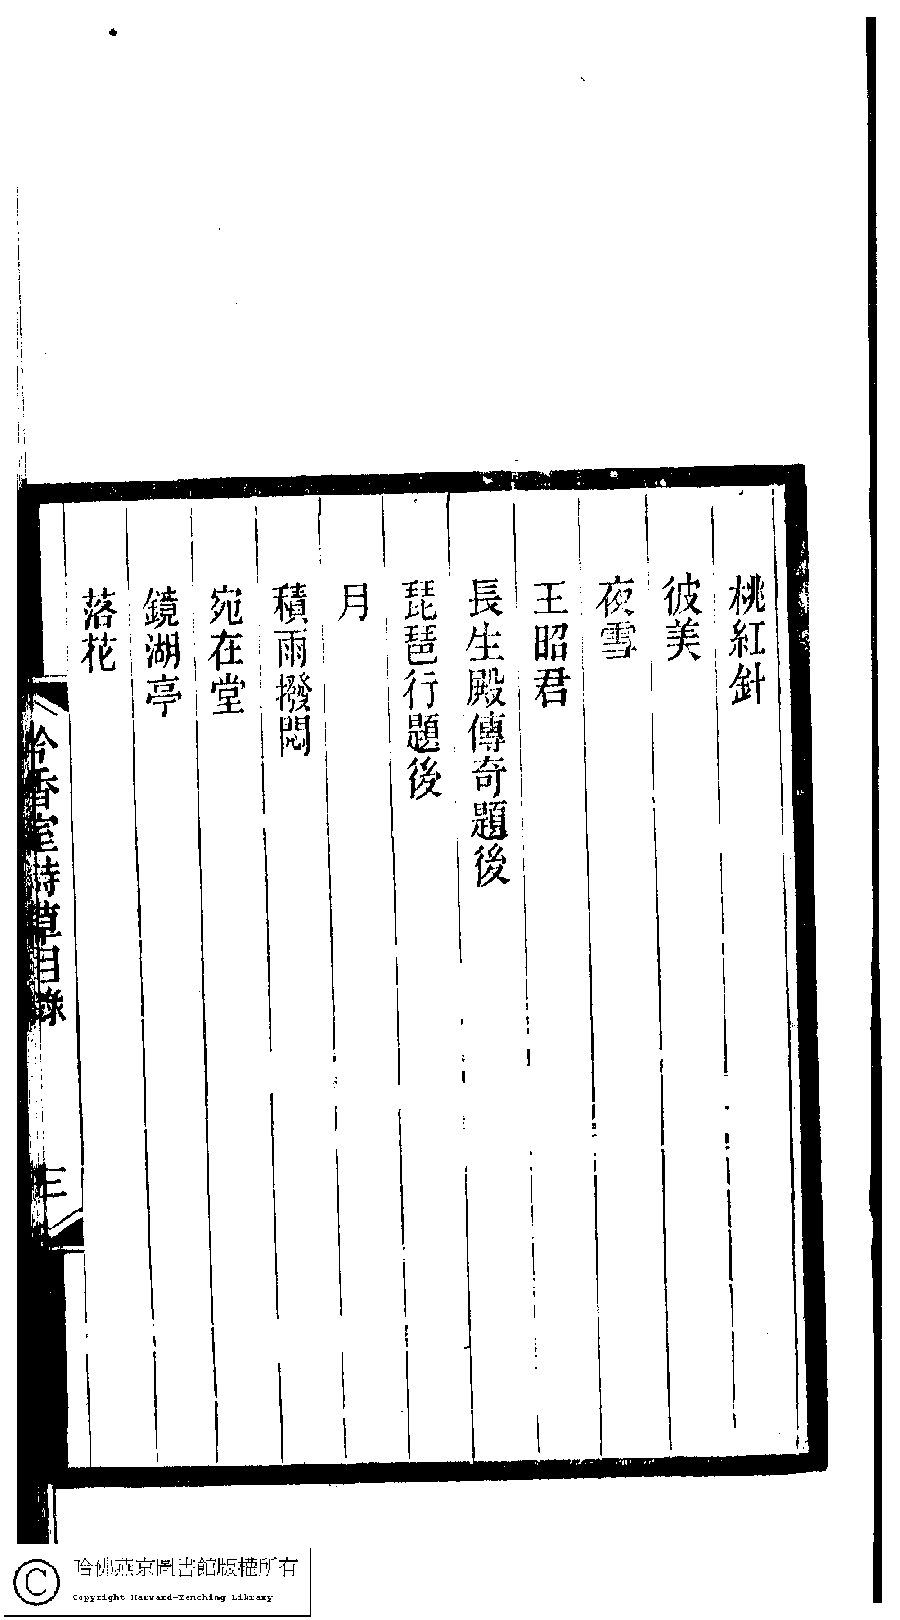 桃紅針
彼美
夜雪
王昭君
長生殿傳奇題後
琵琶行題後
月
積雨撥悶
宛在堂
鏡湖亭
落花
冷香室詩草目錄
三
哈佛燕京圖書館版權所有
Copyright Harvard-Yenching Library